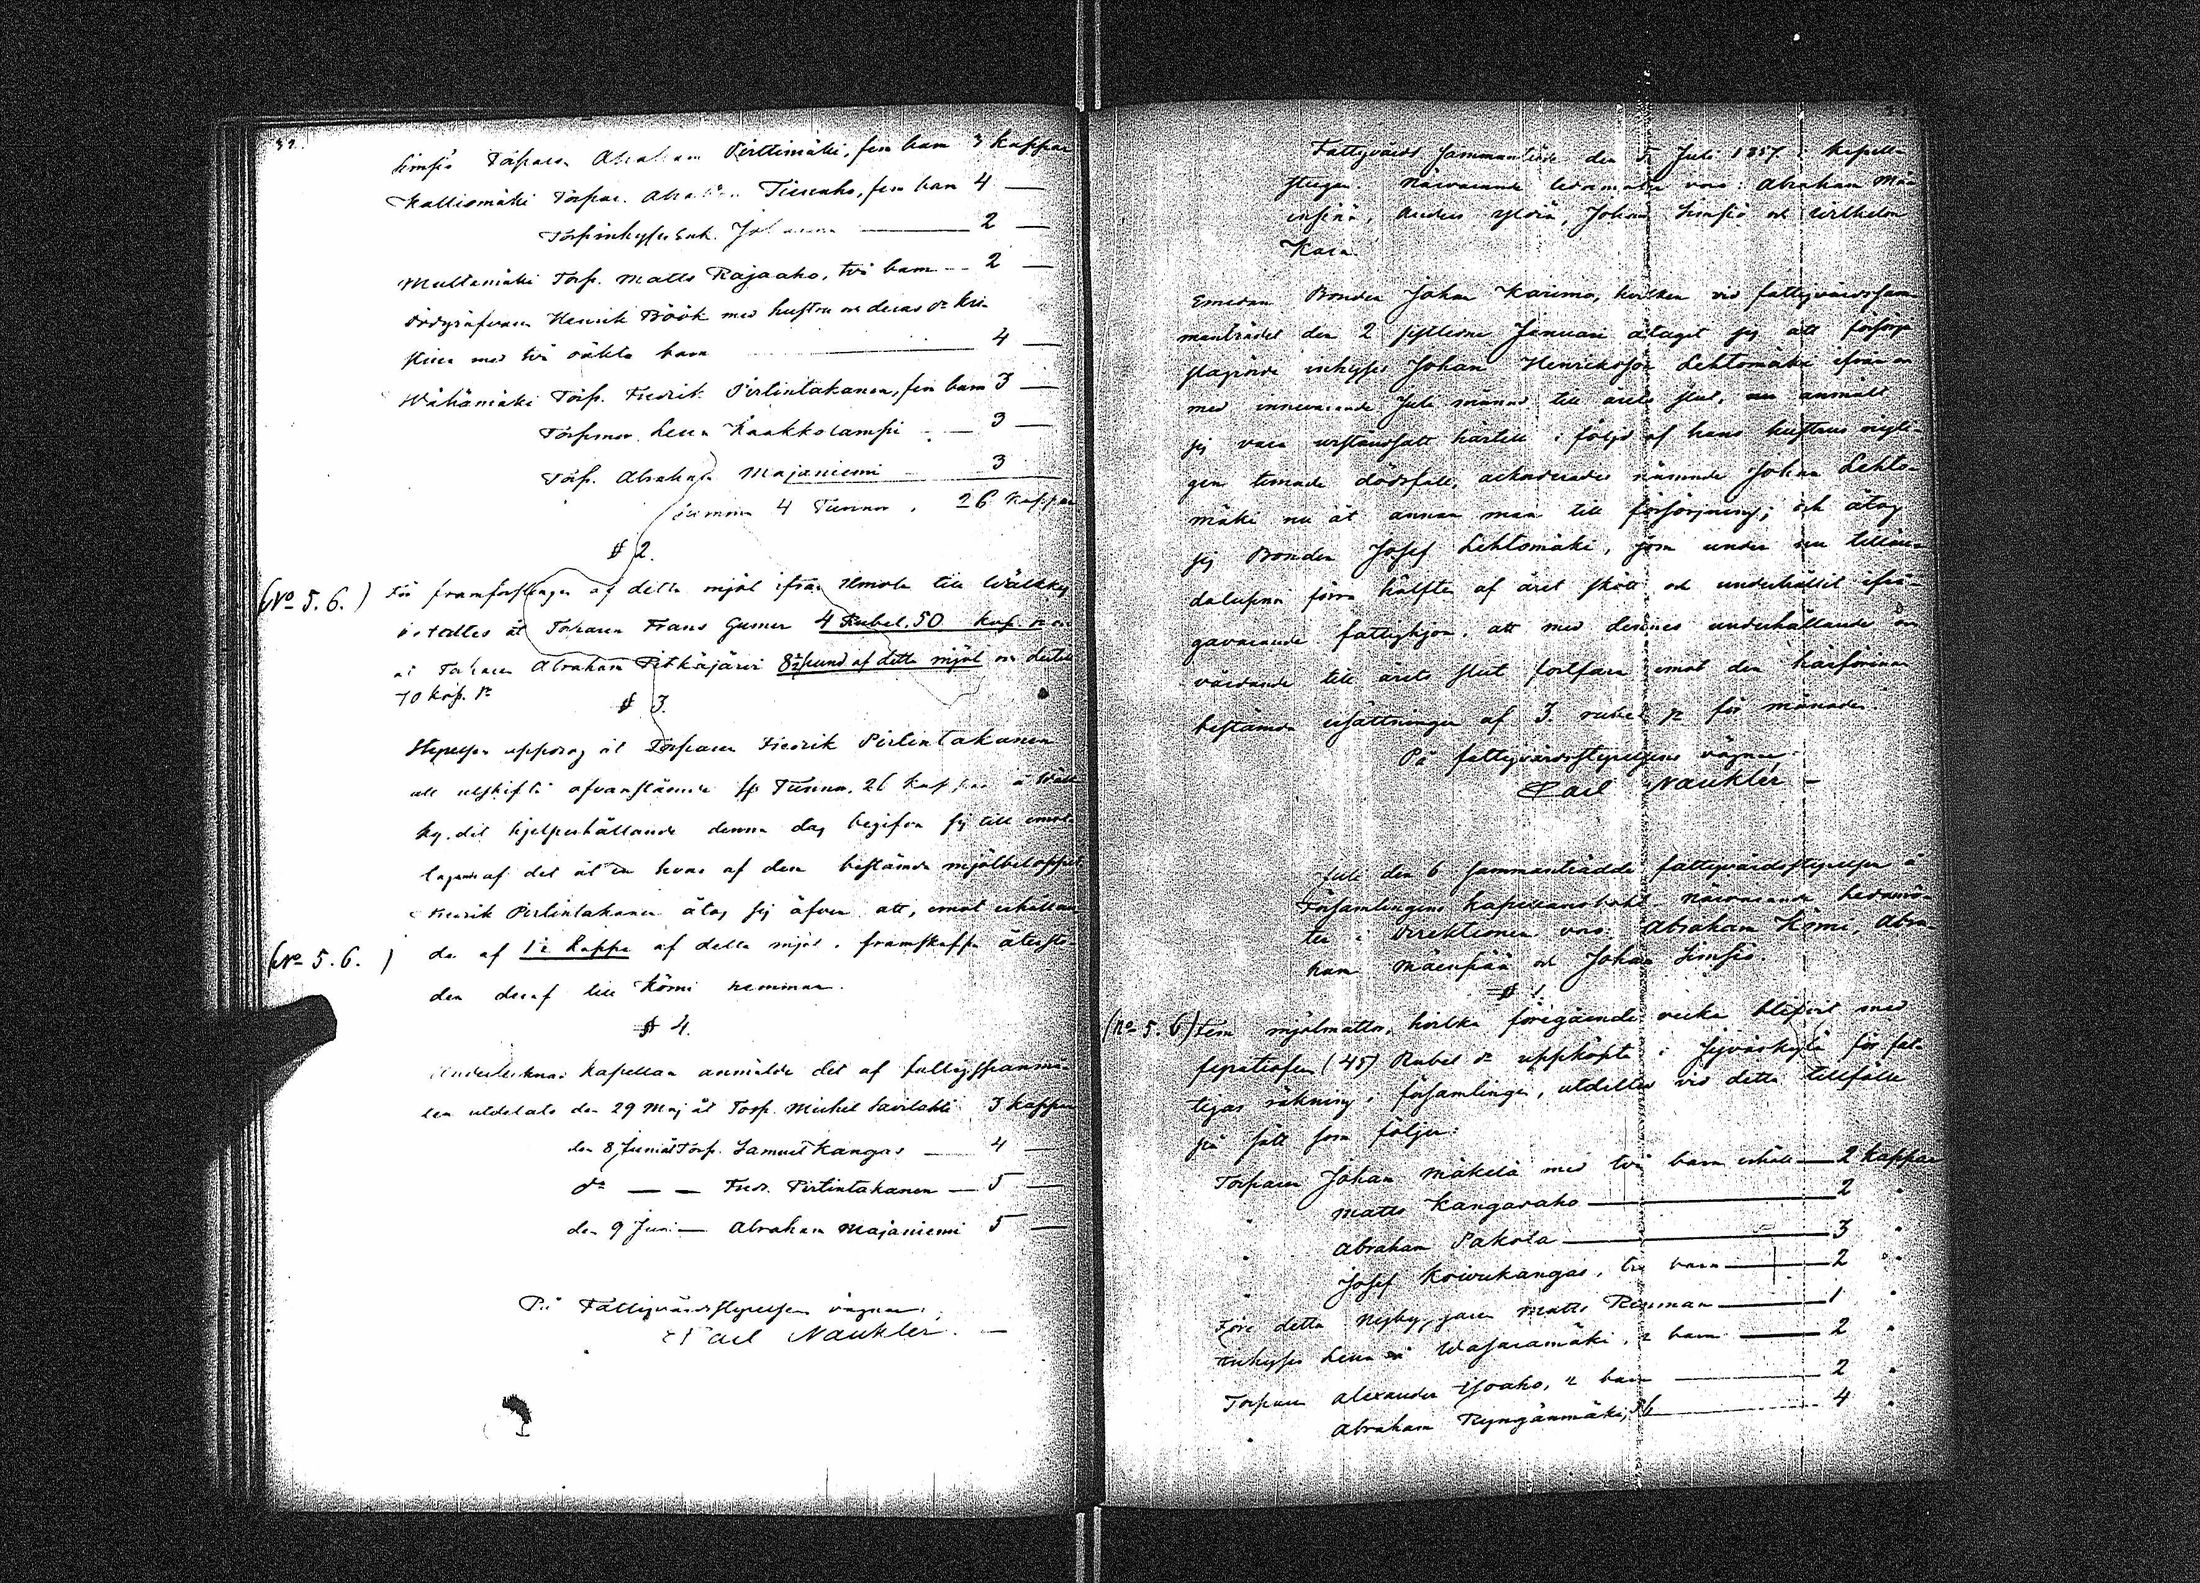 32.
Simsiö Torparen Abraham Pirttimäki, fem barn 3 kappar
Kalliomäki Torpar. Abraham Tienaho, fem barn 4 —
Torpinhyses Enk. Johanna — 2 —
Multamäki Torp. Matts Rajaaho, två barn -- 2 —
Henrik Böök med hustru och deras
med två oäkta barn — 4 —
Wähämäki Torp. Fredrik Pirtintakanen, fem barn 3 —
Torpmor. Lena Kaakkolampi — 3 —
Torp. Abraham Majaniemi 3 —
Summa 4 Tunnor, 26 Kappar
§ 2.
(No 5. 6.) För framforslingen af detta mjöl ifrån Ilmola till
åt Torparen Frans Gumer 4 Rubel. 50 kop. Sr och
åt Torparen Abraham Pitkäjärvi 8½ pund af detta mjöl och
70 kop. Sr
§ 3.
Styrelsen uppdrog åt Torparen Fredrik Pirtintakanen
att utskifta ofvanstående 4 Tunnor, 26 kappar
dit hjelperhållande denna dag begifva sig till emot-
tagande af det åt en hvar af dem bestämda mjölbeloppet
Fredrik Pirtintakanen åtog sig äfven att, emot erhållan-
(No 5. 6.) de af 1½ kappe af detta mjöl, framskaffa återsto-
den deraf till Körni hemman.
§ 4.
Undertecknad Kapellan anmälde det af fattigspanmå-
len utdelats den 29 Maj åt Torp. Michel Savilahti 3 kappar
den 8 Junii åt Torp. Samuel Kangas — 4 —
do — — Fredr. Pirtintakanen — 5 —
den 9 Juni — Abraham Majaniemi 5 —
På Fattigvårdsstyrelsens vägnar:
Carl Nauklér. —
Fattigvårds Sammanträde den 5 Juli 1857 i Kapells-
stugan. Närvarande ledamöter voro: Abraham Mäe-
enpää, Anders Yliröä, Johan Simsiö och Wilhelm
Kara.
Emedan Bonden Johan Karimo, hvilken vid fattigvårdssam-
manträdet den 2 sistledne Januari åtagit sig att försörja
inhyses Johan Henriksson Lehtomäki ifrån och
med innevarande Juli månad till årets slut, nu anmält
sig vara urståndsatt härtill i följd af hans hustrus nyli-
gen timade dödsfall, ackorderades nämnde Johan Lehto-
mäki nu åt annan man till försörjning; och åtog
sig Bonden Josef Lehtomäki, som under nu tillän-
dalupna förra hälften af året skött och underhållit ifrå-
gavarande fattighjon, att med dennes underhållande och
vårdande till årets slut fortfara emot den härförinnan
bestämda ersättningen af 3 rubel Sr för månaden.
På fattigvårdsstyrelsens vägnar:
Carl Nauklér —
Juli den 6 sammanträdde fattigvårdsstyrelsen å
Församlingens kapellansbohl. Närvarande ledamö-
ter i Direktionen voro: Abraham Körni, Abra-
ham Mäenpää och Johan Simsiö.
§ 1.
(No 5. 6) Fem mjölmattor, hvilka föregående vecka blifvit med
fyratiofem (45) Rubel Sr uppköpta i Jyväskylä för fat-
tigas räkning i församlingen, utdeltes vid detta tillfälle
på sätt som följer:
Torparen Johan Mäkelä med två barn erhöll — 2 kappar
" Matts Kangasaho — 2 "
" Abraham Pakola — 3 "
" Josef Koivukangas, tre barn — 2 "
Före detta Nybyggaren Matts Reuman — 1 "
Inhyses Lena Wasaramäki, 2 barn — 2 "
Torparen Alexander Isoaho, 2 barn — 2 "
" Abraham Ryngänmäki, — 4 "